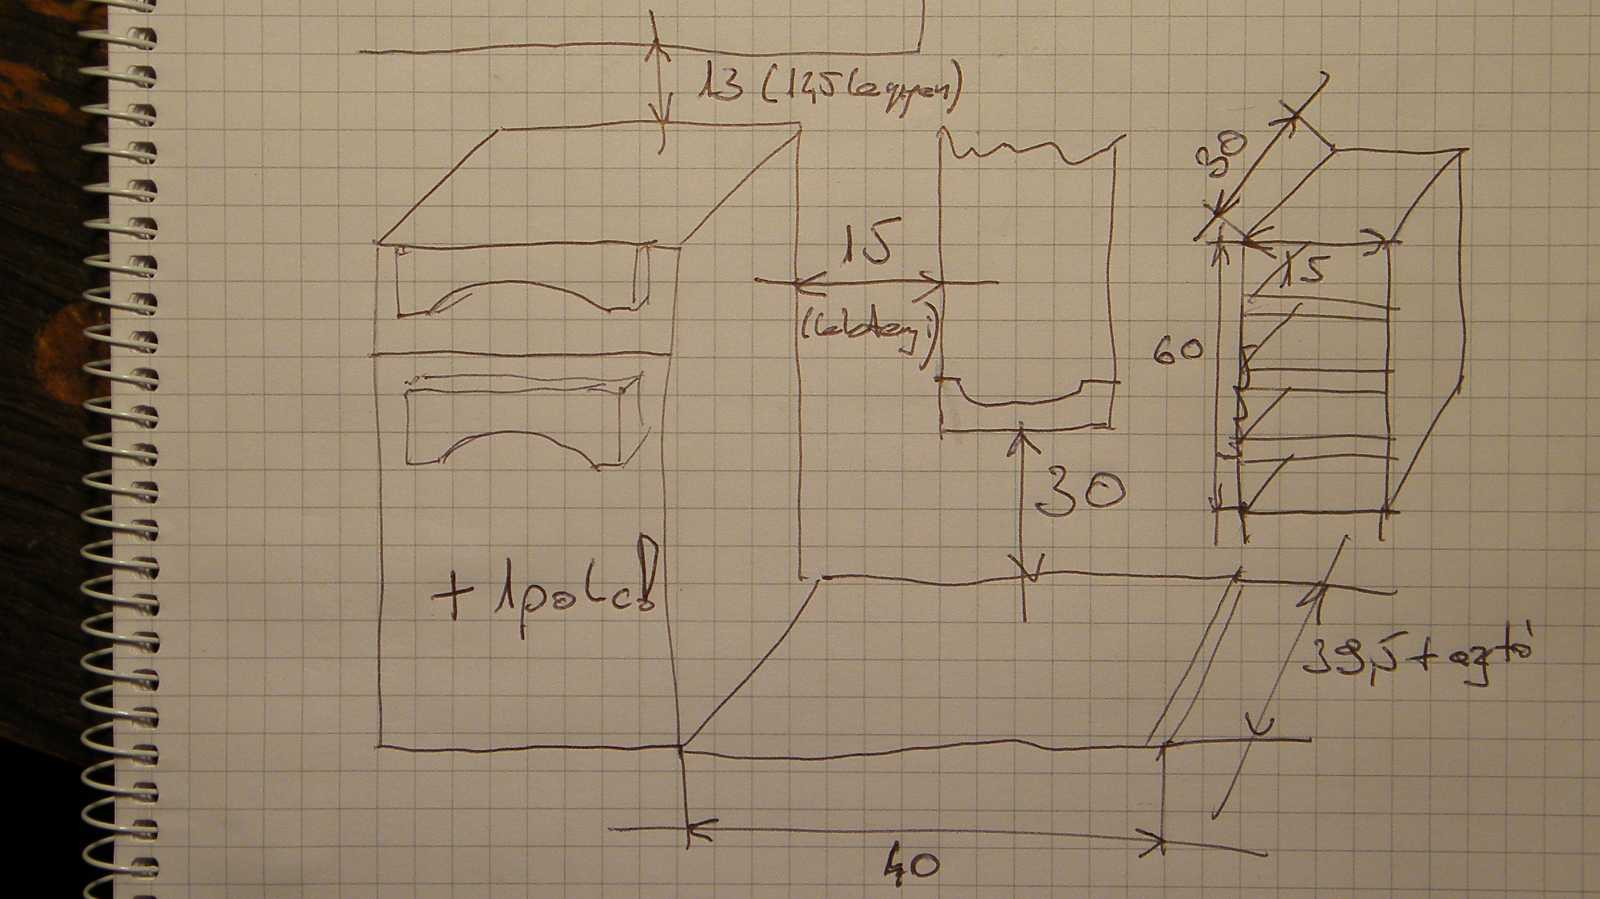 13 (12,5 legyen)
30
15
15
60
30
+ 1 polc
39,5 + ajtó
40